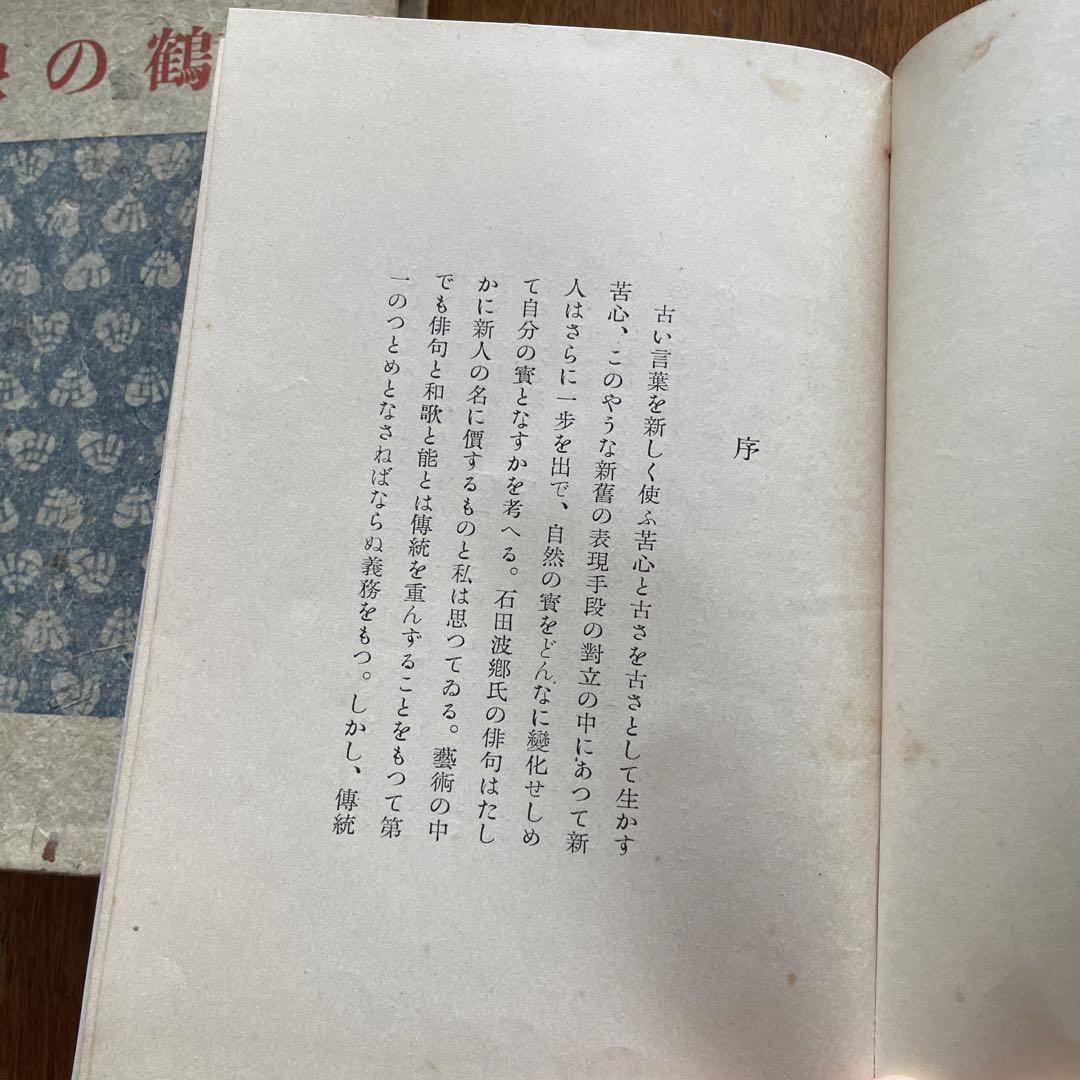 鶴の
序
古い言葉を新しく使ふ苦心と古さを古さとして生かす
苦心、このやうな新舊の表現手段の對立の中にあつて新
人はさらに一步を出で、自然の實をどんなに變化せしめ
て自分の實となすかを考へる。石田波鄕氏の俳句はたし
かに新人の名に價するものと私は思つてゐる。藝術の中
でも俳句と和歌と能とは傳統を重んずることをもつて第
一のつとめとなさねばならぬ義務をもつ。しかし、傳統